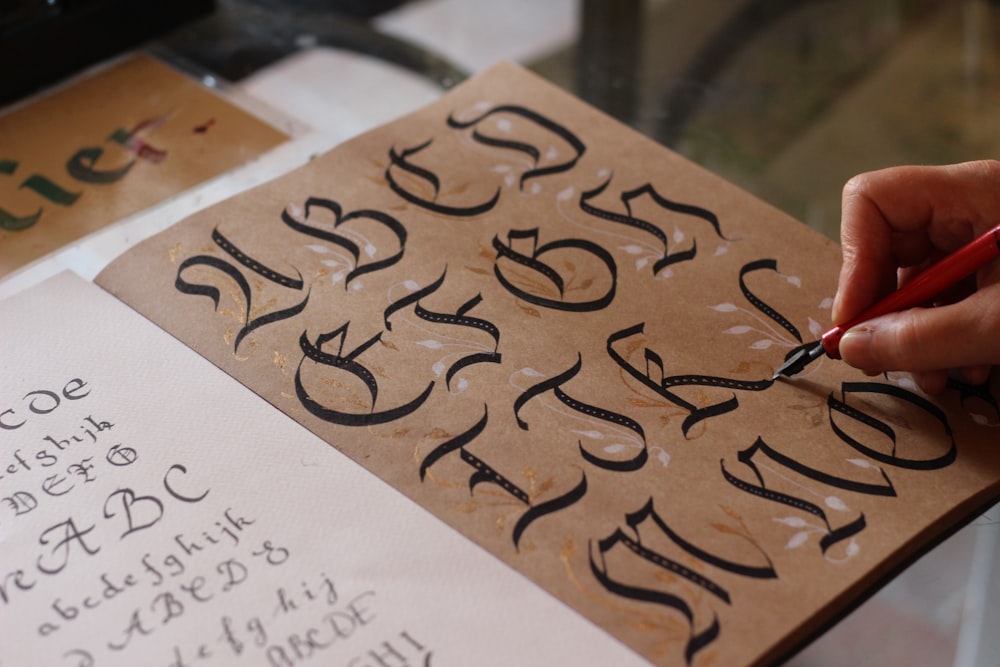 ier
A B C D
E F G H
I J K L
M N O
c d e
efghijk
D E F G
A B C
a b c d e f g h i j k
A B C D E
e f g h i j
A B C D E
G H I